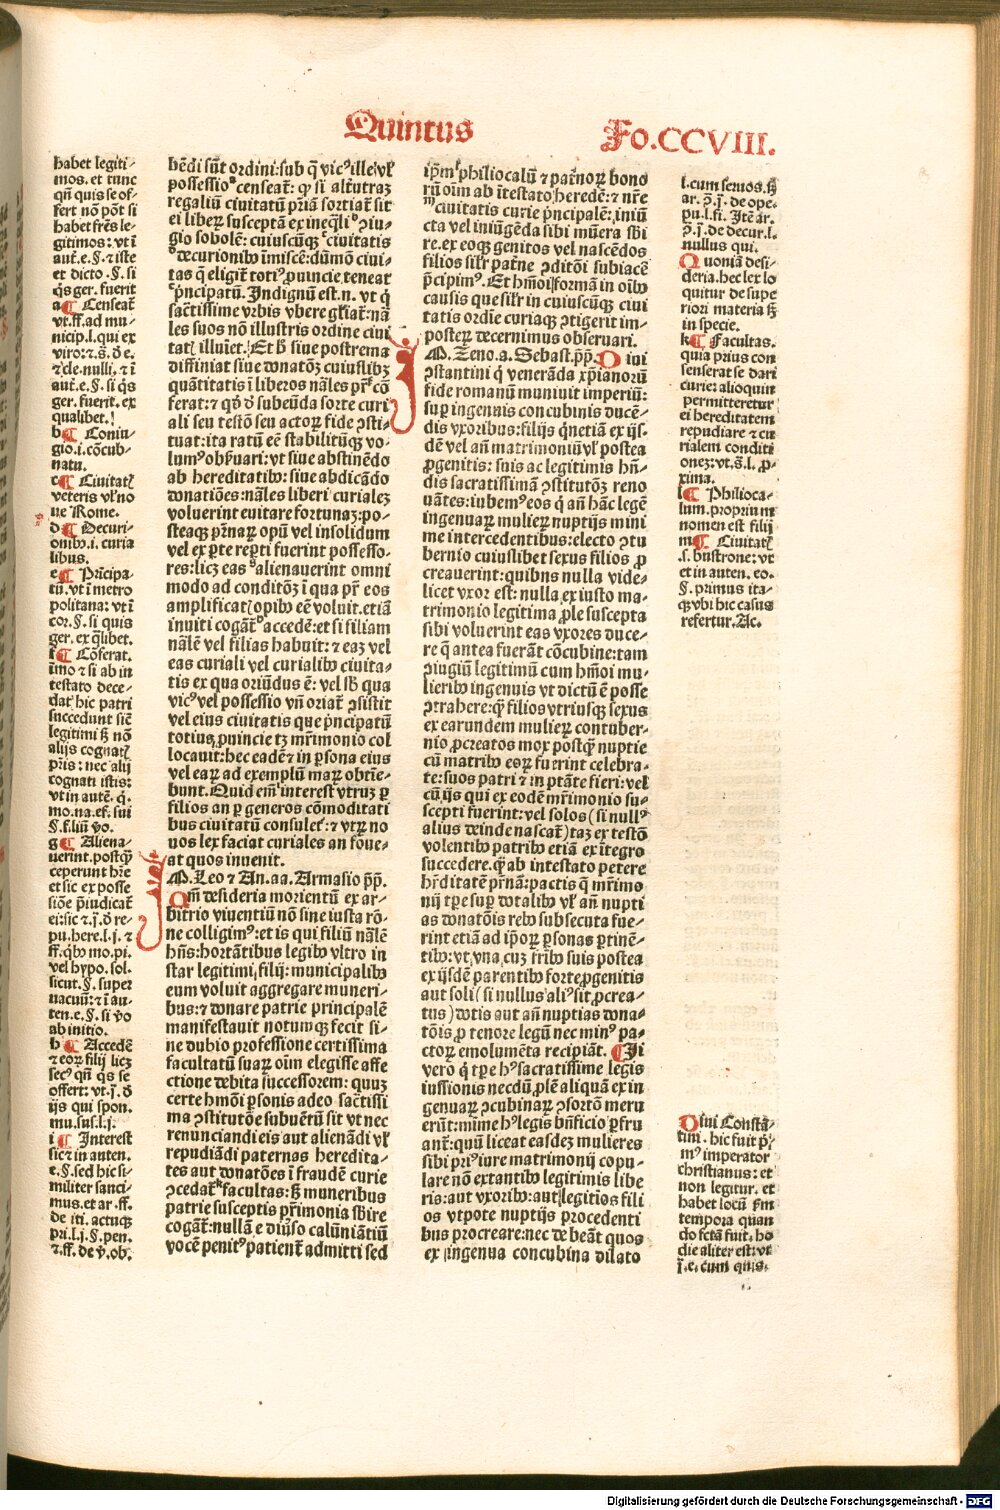 Quintus
Fo.CCVIII.
habet legiti-
mos. et tunc
qñ quis se of-
fert nõ põt si
habet frẽs le-
gitimos: vt ĩ
aut̃.e.§. ⁊ iste
et dicto .§. si
q̃s ger. fuerit
a¶ Censeat̃
vt.ff.ad mu-
nicip.l. qui ex
ger. fuerit. ex
qualibet.
b¶ Coniu-
gio.i.cõcub-
natu.
c¶ Ciuitat̃
veteris vl̃ no
ue Rome.
d¶ Decuri-
onibꝰ.i. curia
libus.
e¶ Prĩcipa-
tũ.vt ĩ metro
politana: vt ĩ
cor.§. si quis
ger. ex q̃libet.
f¶ Cõferat.
ĩmo ⁊ si ab in
testato dece-
dat hic patri
succedunt siẽ
legitimi sꝫ nõ
alijs cognat̃
pr̃is: nec alij
cognati istis:
vt in autẽ. q̃.
mo.na.ef. sui
g¶ Aliena-
uerint. postq̃ꝫ
ceperunt hr̃e
et sic ex posse
siõe p̃iudicat̃
vel hypo. sol.
sicut.§. super
vacuũ: ⁊ ĩ au-
ten.e.§. si ṽo
ab initio.
h¶ Accedẽ
⁊ eoꝝ filij licꝫ
secꝰ qñ q̃s se
offert: vt.j. d̃
ijs qui spon.
mu.sus.l.j.
i¶ Interest
sic ⁊ in auten.
e.§. sed hic si-
militer sanci-
mus. et ar.ff.
de iti. actuqꝫ
pri.l.j.§. pen.
⁊.ff. de ṽ.ob.
hẽdi sũt ordini: sub q̃ vicꝰ ille vl̃
possessio censeat̃: qꝫ si alt̃utraꝫ
regaliũ ciuitatũ pr̃iã sortiat̃ sit
ei liberꝫ susceptã ex ineq̃li ꝯiu-
gio sobolẽ: cuiuscũqꝫ ciuitatis
decurionibꝰ ĩmiscẽ: dũmõ ciui-
tas q̃ eligit̃ totiꝰ ꝓuincie teneat
p̃ncipatũ. Indignũ est.n. vt q̃
sac̃tissime vrbis vbere gl̃iat̃: na
les suos nõ illustris ordine ciui
tat̃ illuiet. Et h̃ siue postrema
diffiniat siue donatõꝫ cuiuslibꝫ
quãtitatis ĩ liberos nãles pr̃ cõ
ferat: ⁊ qd̃ d̃ subeũda sorte curi
ali seu testõ seu actoꝝ fide ꝯsti-
tuat: ita ratũ eẽ stabilitũqꝫ vo-
lumꝰ obs̃uari: vt siue abstinẽdo
ab hereditatibꝰ: siue abdicãdo
donatiões: nãles liberi curialeꝫ
voluerint euitare fortunaꝫ: po-
steaqꝫ pr̃naꝝ opũ vel insolidum
vel ex ꝑte rep̃ti fuerint possesso-
res: licꝫ eas alienauerint omni
modo ad conditõꝫ ĩ qua pr̃ eos
amplificat̃ opibꝰ eẽ voluit. etiã
inuiti cogãt̃ accedẽ: et si filiam
nãlẽ vel filias habuit: ⁊ eaꝫ vel
eas curiali vel curialibꝰ ciuita-
tis ex qua oriũdus ẽ: vel sb̃ qua
vicꝰ vel possessio vñ oriat̃ ꝯsistit
vel eius ciuitatis que p̃ncipatũ
totiuꝰ ꝓuincie tꝫ mr̃imonio col
locauit: hec eadẽ ⁊ in ꝑsona eius
vel eaꝝ ad exemplũ maꝝ obtĩe-
bunt. Quid em̃ interest vtruꝫ ꝑ
filios an ꝑ generos cõmoditati
bus ciuitatũ consulet̃: ⁊ vtꝝ no
uos lex faciat curiales an foue-
at quos inuenit.
M. Leo ⁊ An. aa. Armasio pp̃.
Qm̃ desideria morientũ ex ar-
bitrio viuentiũ nõ sine iusta rõ-
ne colligimꝰ: et is qui filiũ nãlẽ
hñs: hortãtibus legibꝰ vltro in
star legitimi filij: municipalibꝰ
eum voluit aggregare muneri-
bus: ⁊ donare patrie principalẽ
manifestauit notumqꝫ fecit si-
ne dubio professione certissima
facultatũ suaꝝ oĩm elegisse affe
ctione debita successorem: quuꝫ
certe hmõi ꝑsonis adeo sac̃tissi
ma ꝯstitutõe subuẽtũ sit vt nec
renunciandi eis aut alienãdi vl̃
repudiãdi paternas heredita-
tes aut donatões ĩ fraudẽ curie
ꝯcedat̃ facultas: sꝫ muneribus
patrie susceptis pr̃imonia sb̃ire
cogãt̃: nullã e diuso calũniãtiũ
vocẽ penitꝰ patient̃ admitti sed
ip̃m philiocalũ ⁊ pat̃noꝝ bono
rũ oĩm ab ĩtestato heredẽ: ⁊ nr̃e
ciuitatis curie p̃ncipalẽ: iniũ
cta vel iniũgẽda sibi mũera sb̃i
re. ex eoqꝫ genitos vel nascẽdos
filios silr̃ pat̃ne ꝯditõi subiacẽ
p̃cipimꝰ. Et hmõi formã in oĩbꝰ
causis que silr̃ in cuiuscũqꝫ ciui
tatis ordĩe curiaqꝫ ꝯtigerit im-
posteꝝ decernimus obseruari.
M. Zeno. a. Sebast. pp̃. Diui
ꝯstantini q̃ venerãda xp̃ianorũ
fide romanũ muniuit imperiũ:
suꝑ ingenuis concubinis ducẽ-
dis vxoribus: filijs q̃netiã ex ijs-
dẽ vel añ matrimoniũ vl̃ postea
ꝓgenitis: suis ac legitimis hñ-
dis sacratissimã ꝯstitutõꝫ reno
uãtes: iubemꝰ eos q̃ añ hãc legẽ
ingenuaꝝ mulieꝝ nuptijs mini
me intercedentibus: electo ꝯtu
bernio cuiuslibet sexus filios ꝓ
creauerint: quibns nulla vide-
licet vxor est: nulla ex iusto ma-
trimonio legitima ꝓle suscepta
sibi voluerint eas vxores duce-
re q̃ antea fuerãt cõcubine: tam
ꝯiugiũ legitimũ cum hmõi mu-
lieribꝰ ingenuis vt dictũ ẽ posse
ꝯtrahere: qꝫ filios vtriusqꝫ sexus
ex earundem mulieꝝ contuber-
nio ꝓcreatos mox postq̃ꝫ nuptie
cũ matribꝰ eoꝝ fuerint celebra-
te: suos patri ⁊ in ptãte fieri: vel
cũ ijs qui ex eodẽ mr̃imonio su-
scepti fuerint: vel solos (si nullꝰ
alius deinde nascat̃) taꝫ ex testõ
volentibꝰ patribꝰ etiã ex ĩtegro
succedere. qꝫ ab intestato petere
hr̃ditatẽ pr̃nã: pactis q̃ mr̃imo
nij tp̃e suꝑ dotalibꝰ vl̃ añ nupti
as donatõis rebꝰ subsecuta fue-
rint etiã ad ip̃oꝝ ꝑsonas ꝑtinẽ-
tibꝰ: vt vna cuꝫ fr̃ibꝰ suis postea
ex ijsdẽ parentibꝰ forte ꝓgenitis
aut soli (si nullus aliꝰ sit ꝓcrea-
tus) dotis aut añ nuptias dona-
tõis ꝓ tenore legũ nec minꝰ pa-
ctoꝝ emolumẽta recipiãt. ¶ Ji
vero q̃ tp̃e hꝰ sacratissime legis
iussionis necdũ ꝓlẽ aliquã ex in
genuaꝝ ꝯcubinaꝝ ꝯsortõ meru
erũt: mime hꝰ legis bñficio ꝑfru
ant̃: quũ liceat easdeꝫ mulieres
sibi priꝰ iure matrimonij copu-
lare nõ extantibꝰ legitimis libe
ris: aut vxoribꝰ: aut legitios fili
os vtpote nuptijs procedenti
bus procreare: nec debeãt quos
ex ingenua concubina dilato
l. cum seruos. sꝫ
ar. ꝯ̃.j. de ope-
pu.l.fi. Itẽ ar.
ꝯ̃.j. de decur.l.
nullus qui.
Quoniã desi-
deria. hec lex lo
quitur de supe
riori materia sꝫ
in specie.
k¶ Facultas.
quia prius con
senserat se dari
curie: alioquin
permitteretur
ei hereditatem
repudiare ⁊ cu
rialem conditi
oneꝫ: vt.s̃.l. ꝓ-
xima.
l¶ Philioca-
lum. proprium
nomen est filij
m¶ Ciuitat̃
.s. bustrone: vt
et in auten. eo-
§. primus ita-
qꝫ vbi hic casus
refertur. Ac.
Diui Constã-
tini. hic fuit p̃-
mꝰ imperator
christianus: et
non legitur. et
habet locũ ẽm
tempora quan
do fctã fuit. ho
die aliter est: vt
ĩ.c. cum quis.
Digitalisierung gefördert durch die Deutsche Forschungsgemeinschaft - DFG